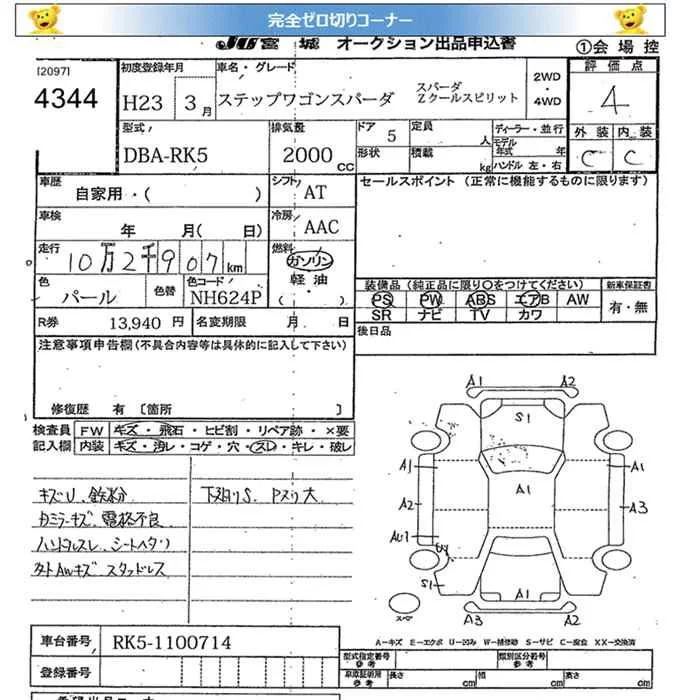 完全ゼロ切りコーナー
JU宮城 オークション出品申込書 ①会場控
[2097]
4344
初度登録年月 車名・グレード
H23 3月 ステップワゴンスパーダ スパーダ Zクールスピリット
2WD・4WD
評価点
4
外装 内装
C C
型式 排気量 ドア 定員 ディーラー・並行
DBA-RK5 2000CC 5 人 モデル年式 年
形状 積載 kg ハンドル 左・右
車歴 自家用・( ) シフト AT
セールスポイント (正常に機能するものに限ります)
車検 年 月( 日) 冷房 AAC
走行 10万2千907km 燃料 ガソリン 軽油 ・( )
色 パール 色替 色コード NH624P
装備品 (純正品に限り○をつけてください) 新車保証書
PS PW ABS エアB AW 有・無
SR ナビ TV カワ
R券 13,940円 名変期限 月 日
後日品
注意事項申告欄(不具合内容等は具体的に記入して下さい)
修復歴 有 〔箇所 〕
検査員 FW キズ・飛石・ヒビ割・リペア跡・×要
記入欄 内装 キズ・汚レ・コゲ・穴・スレ・キレ・破レ
キズU、鉄粉 下廻りS、Pスリ大
カミラーキズ、電格不良
ハンドルスレ、シートヘタリ
タトAWキズ スタッドレス
A1 A2
S1
A1 A1 A1
A2 A3
AU1 UY
S1 A1
A3 A2
スペア
A−キズ E−エクボ U−凹み W−補修跡 S−サビ C−腐食 XX−交換済
車台番号 RK5-1100714
登録番号
型式指定番号 参考 類別区分番号 参考
車庫証明用 参考 長さ cm 幅 cm 高さ cm